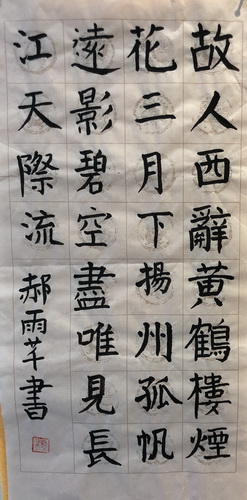 故人西辭黃鶴樓煙
花三月下揚州孤帆
遠影碧空盡唯見長
江天際流
郝雨芊書